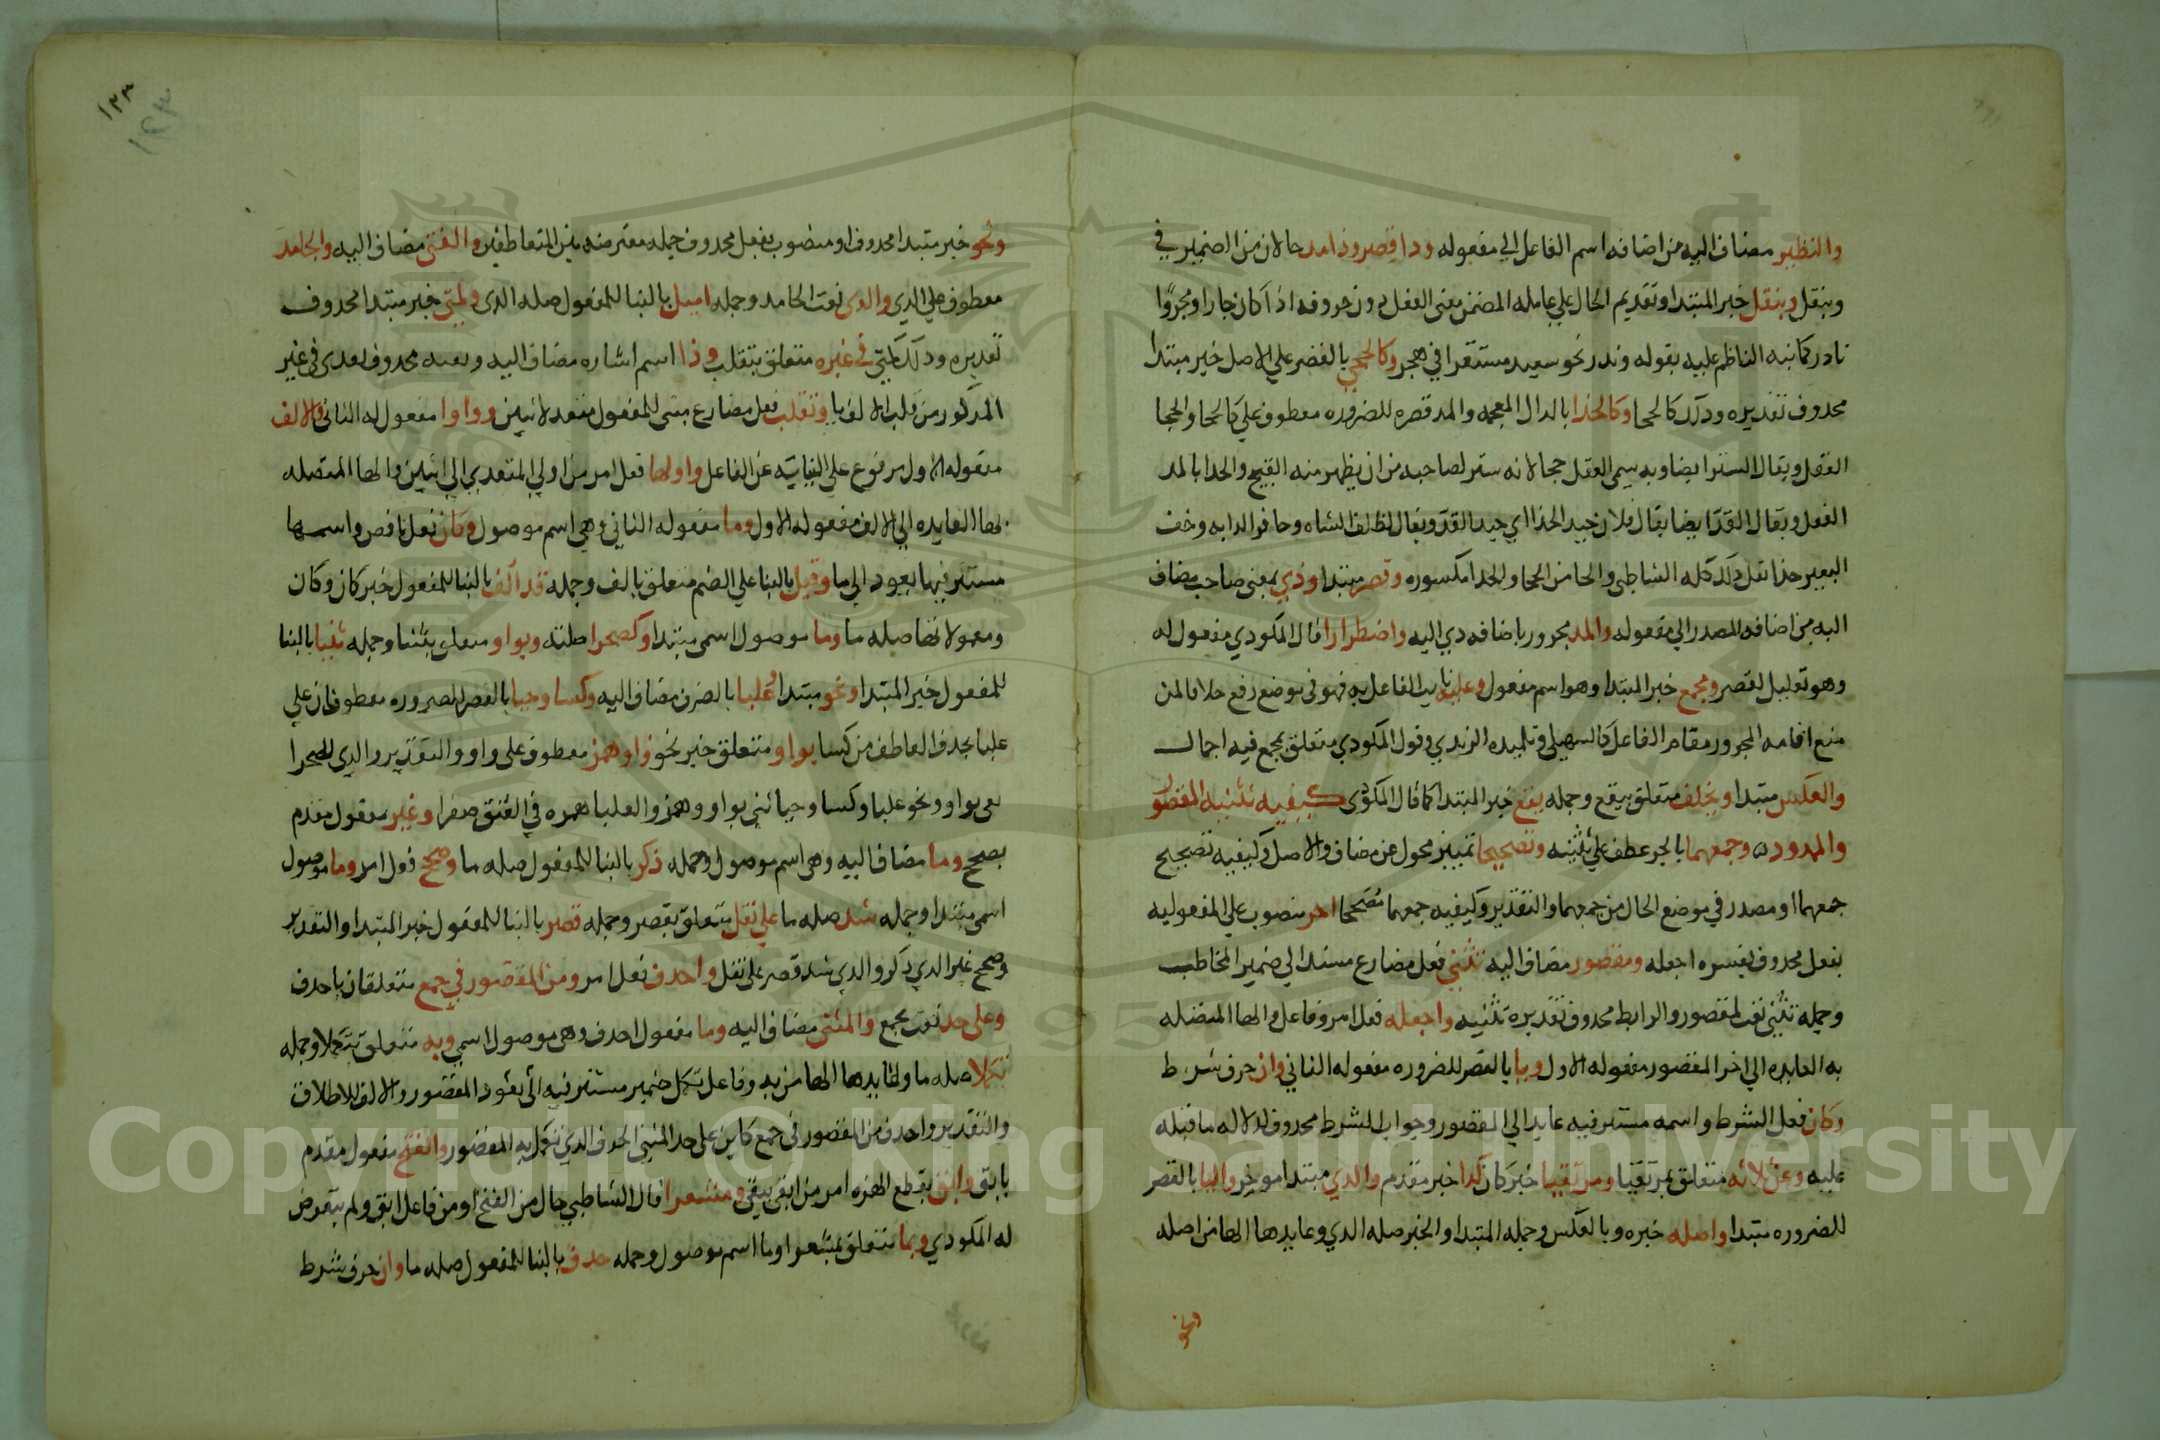 والنظير مضاف اليه من اضافه اسم الفاعل الي مفعوله وذا قصر وذا مد حالان من الضمير في
وبنقل وبنقل خبر المبتدا وتقديم الحال علي عامله المضمن معنى الفعل دون حروفه اذا كان جارا ومجرورًا
نادر كما نبه الناظم عليه بقوله وندر نحو سعيد مستقرا في هجر وكالحجي بالقصر علي الاصل خبر مبتدا
محدوف تقديره ودلك كالحجا وكالحذا بالدال المعجمه والمد قصره للضروره معطوف علي كالحجا والحجا
العقل ويقال الستر ايضا وبه سمي العقل حجا لانه ستر لصاحبه من ان يظهر منه القبيح والحذا بالمد
النعل ويقال القدّ ايضا يقال فلان جيد الحذا اي جيد القدّ ويقال لظلف الشاه وحافر الدابه وخف
البعير حذا نقل ذلك كله الشاطبي والحا من الحجا والحذا مكسوره وقصر مبتدا وذي بمعنى صاحب مضاف
اليه من اضافه المصدر الي مفعوله والمد مجرور باضافه دي اليه واضطرارا قال المكودي مفعول له
وهو تعليل لقصر ومجمع خبر المبتدا وهو اسم مفعول وعليه نايب الفاعل به فهو في موضع رفع خلافا لمن
منع اقامه المجرور مقام الفاعل كالسهيلي وتلميذه الرندي وقول المكودي متعلق بمجمع فيه اجمال
والعكس مبتدا وبخلف متعلق بيقع وجمله يقع خبر المبتدا كما قال المكودي كيفيه تثنيه المقصور
والممدود وجمعهما بالجر عطف علي تثنيه وتصحيحا تمييز محول عن مضاف والاصل وكيفيه تصحيح
جمعهما او مصدر في موضع الحال من جمعهما والتقدير وكيفيه جمعهما مُصَححا اخر منصوب علي المفعوليه
بفعل محدوف يفسره اجعله ومقصور مضاف اليه تثني فعل مضارع مسند الي ضمير المخاطب
وجمله تثني نعت لمقصور والرابط محدوف تقديره تثنيه واجعله فعل امر وفاعل والها المتصله
به العايده الي اخر المقصور مفعوله الاول ويا بالقصر للضروره مفعوله الثاني وان حرف شرط
وكان فعل الشرط واسمه مستتر فيه عايد الي المقصور وجواب الشرط محدوف لدلاله ما قبله
عليه وعن ثلاثه متعلق بمرتقيا ومرتقيا خبر كان كذا خبر مقدم والذي مبتدا موخر واليا بالقصر
للضروره مبتدا واصله خبره وبالعكس وجمله المبتدا والخبر صله الدي وعايدها الها من اصله
ونحو
١٢٣
١٢٣
ونحو خبر مبتدا محدوف او منصوب بفعل محدوف جمله معترضه بين المتعاطفين والفتى مضاف اليه والجامد
معطوف علي الدي والدي نعت الجامد وجمله اميل بالبنا للمفعول صله الدي كمتى خبر مبتدا محدوف
تقديره ودلك كمتي في غيره متعلق بتقلب وذا اسم اشاره مضاف اليه ونعته محدوف تقدير في غير
المدكور من قلب الالف يا وتقلب فعل مضارع مبنى للمفعول متعد لاثنين وواوا مفعوله الثاني والالف
مفعوله الاول مرفوع علي النيابه عن الفاعل واولها فعل امر من اولي المتعدي الي اثنين والها المتصله
بها العايده الي الالف مفعوله الاول وما مفعوله الثاني وهي اسم موصول وكان فعل ناقص واسمها
مستتر فيها يعود الي ما وقبل بالبنا علي الضم متعلق بالف وجمله قد الف بالبنا للمفعول خبر كان وكان
ومعمولاتها صله ما وما موصول اسمي مبتدا وكصحرا صلته وبواو متعلق بثنيا وجمله ثنيا بالبنا
للمفعول خبر المبتدا ونحو مبتدا وعُلبا بالصرف مضاف اليه وكسا وحيا بالقصر للضروره معطوفان علي
علبا بحدف العاطف من كسا بواو متعلق خبر نحو او وهمز معطوف على واو والتقدير والدي كصحرا
ثني بواو ونحو علبا وكسا وحيا ثني بواو وهمز والعلبا عصبه في العنق صفرا وغير مفعول مقدم
بصحح وما مضاف اليه وهي اسم موصول وجمله ذكر بالبنا للمفعول صله ما وصحح فعل امر وما موصول
اسمي مبتدا وجمله شد صله ما علي نقل متعلق بقصر وجمله قصر بالبنا للمفعول خبر المبتدا والتقدير
وصحح غير الدي دكر والدي شد قصر علي نقل واحدف فعل امر ومن المقصور في جمع متعلقان باحدف
وعلى حد نعت لجمع والمثنى مضاف اليه وما مفعول احدف وهي موصول اسمي وبه متعلق بتكملا وجمله
تكملا صله ما وعايدها الها من به وفاعل تكمل ضمير مستتر فيه الي يعود المقصور والالف للاطلاق
والتقدير واحدف من المقصور في جمع كاين على حد المثني الحرف الدي تكمل به المقصور والفتح مفعول مقدم
بابق وابق بقطع الهمزه امر من ابقى يبقي ومشعرا قال الشاطبي حال من الفتح او من فاعل ابق ولم يتعرض
له المكودي وبما متعلق بمشعرا وما اسم موصول وجمله حدف بالبنا للمفعول صله ما وان حرف شرط
Copyright © King Saud University